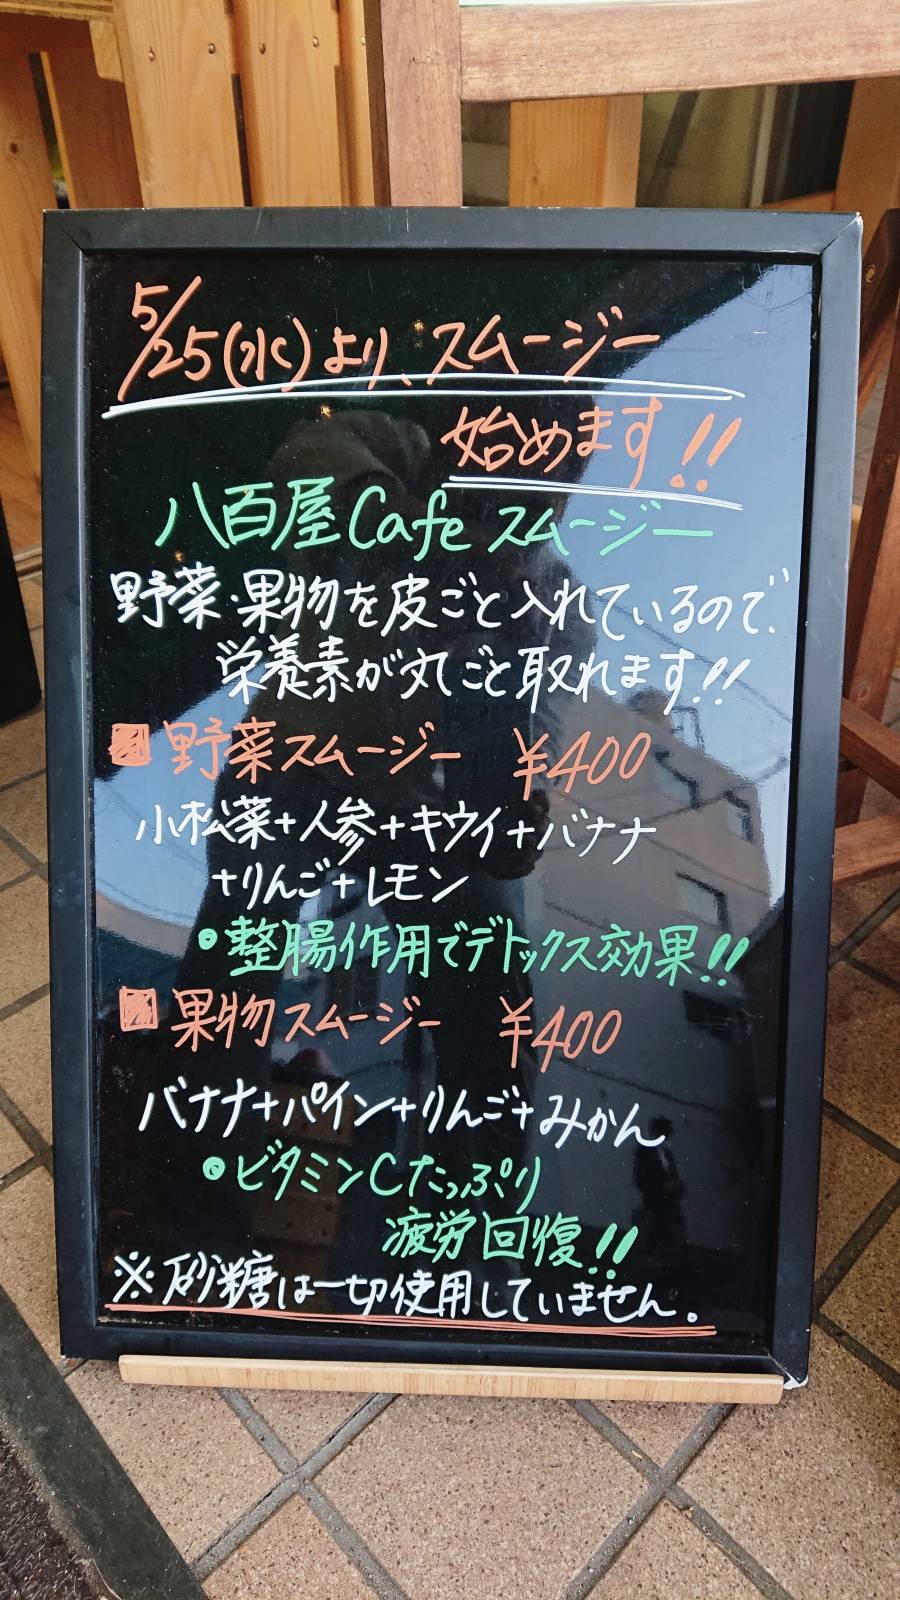 5/25(水)より、スムージー
始めます!!
八百屋Cafeスムージー
野菜・果物を皮ごと入れているので、
栄養素が丸ごと取れます!!
野菜スムージー ¥400
小松菜+人参+キウイ+バナナ
+りんご+レモン
・整腸作用でデトックス効果!!
果物スムージー ¥400
バナナ+パイン+りんご+みかん
・ビタミンCたっぷり
疲労回復!!
※砂糖は一切使用していません。